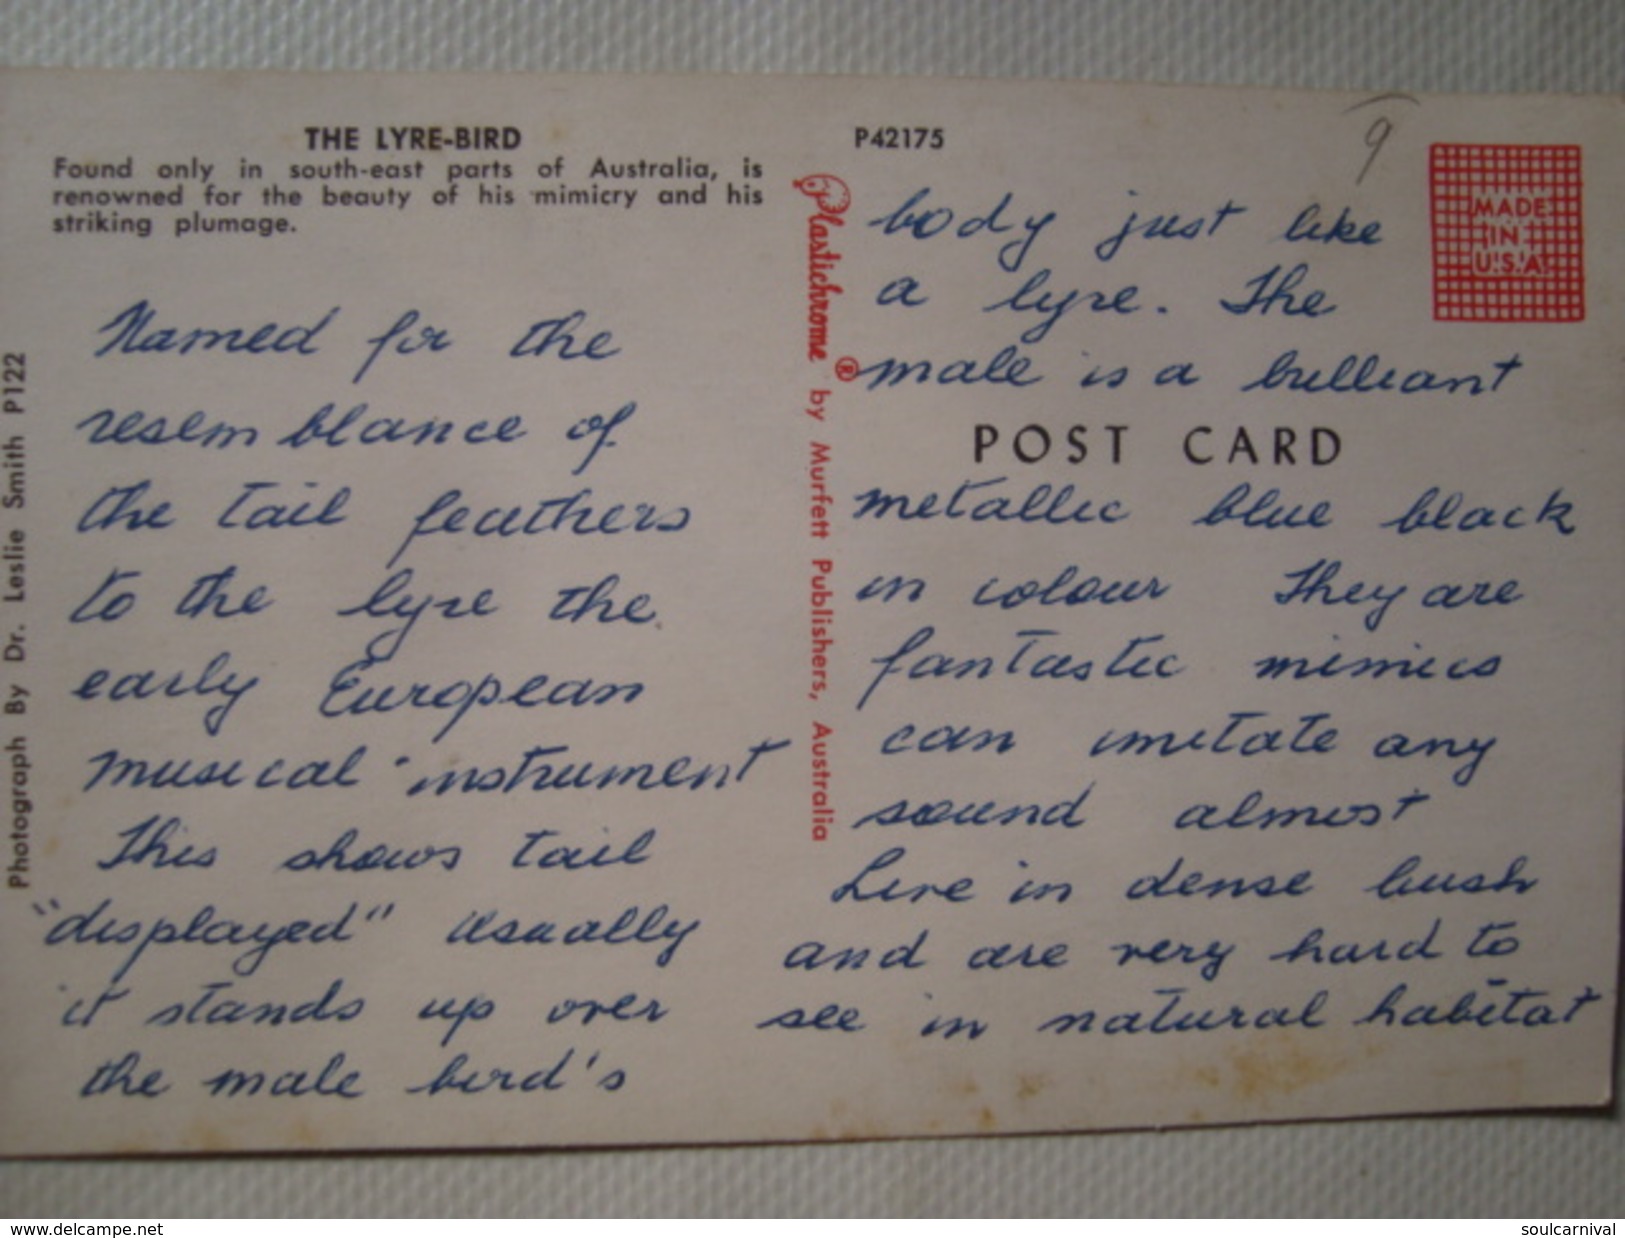 THE LYRE-BIRD
Found only in south-east parts of Australia, is
renowned for the beauty of his mimicry and his
striking plumage.
Named for the
resemblance of
the tail feathers
to the lyre the
early European
musical instrument
This shows tail
"displayed" usually
it stands up over
the male bird's
Photograph By Dr. Leslie Smith P122
Plastichrome ® by Murfett Publishers, Australia
P42175
9
MADE
IN
U.S.A.
body just like
a lyre. The
male is a brilliant
POST CARD
metallic blue black
in colour They are
fantastic mimics
can imitate any
sound almost
Live in dense bush
and are very hard to
see in natural habitat
www.delcampe.net
soulcarnival